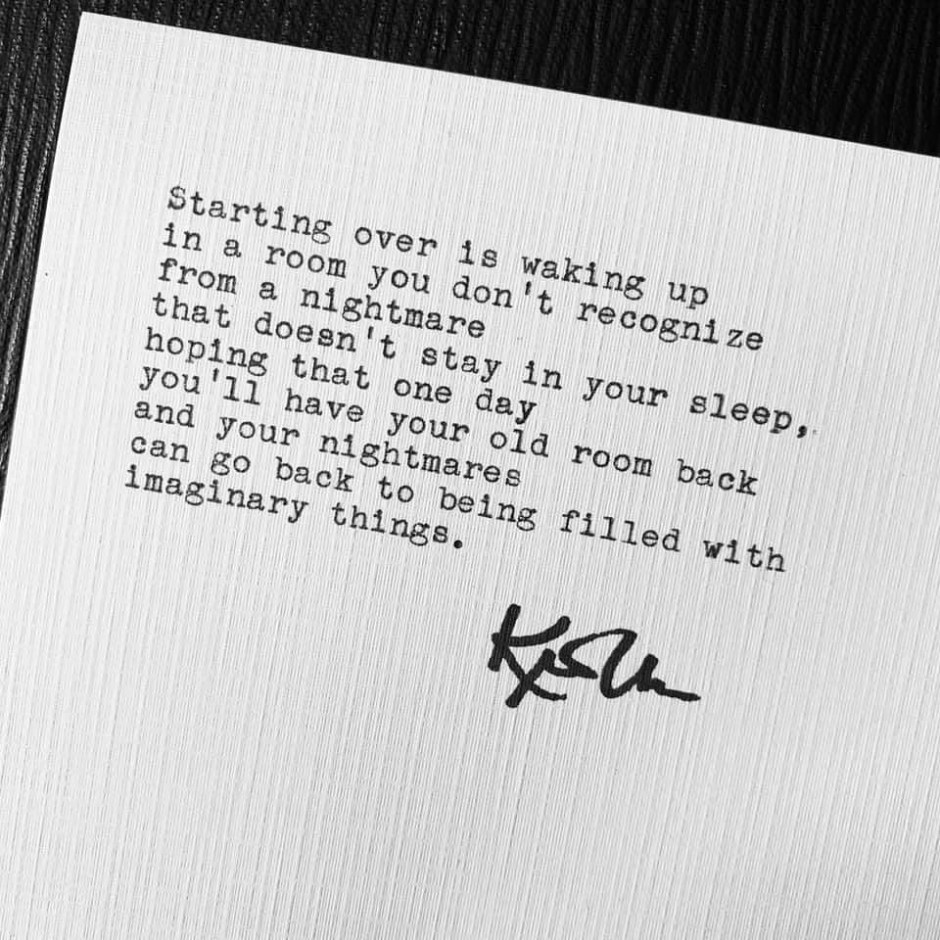 Starting over is waking up
in a room you don't recognize
from a nightmare
that doesn't stay in your sleep,
hoping that one day
you'll have your old room back
and your nightmares
can go back to being filled with
imaginary things.